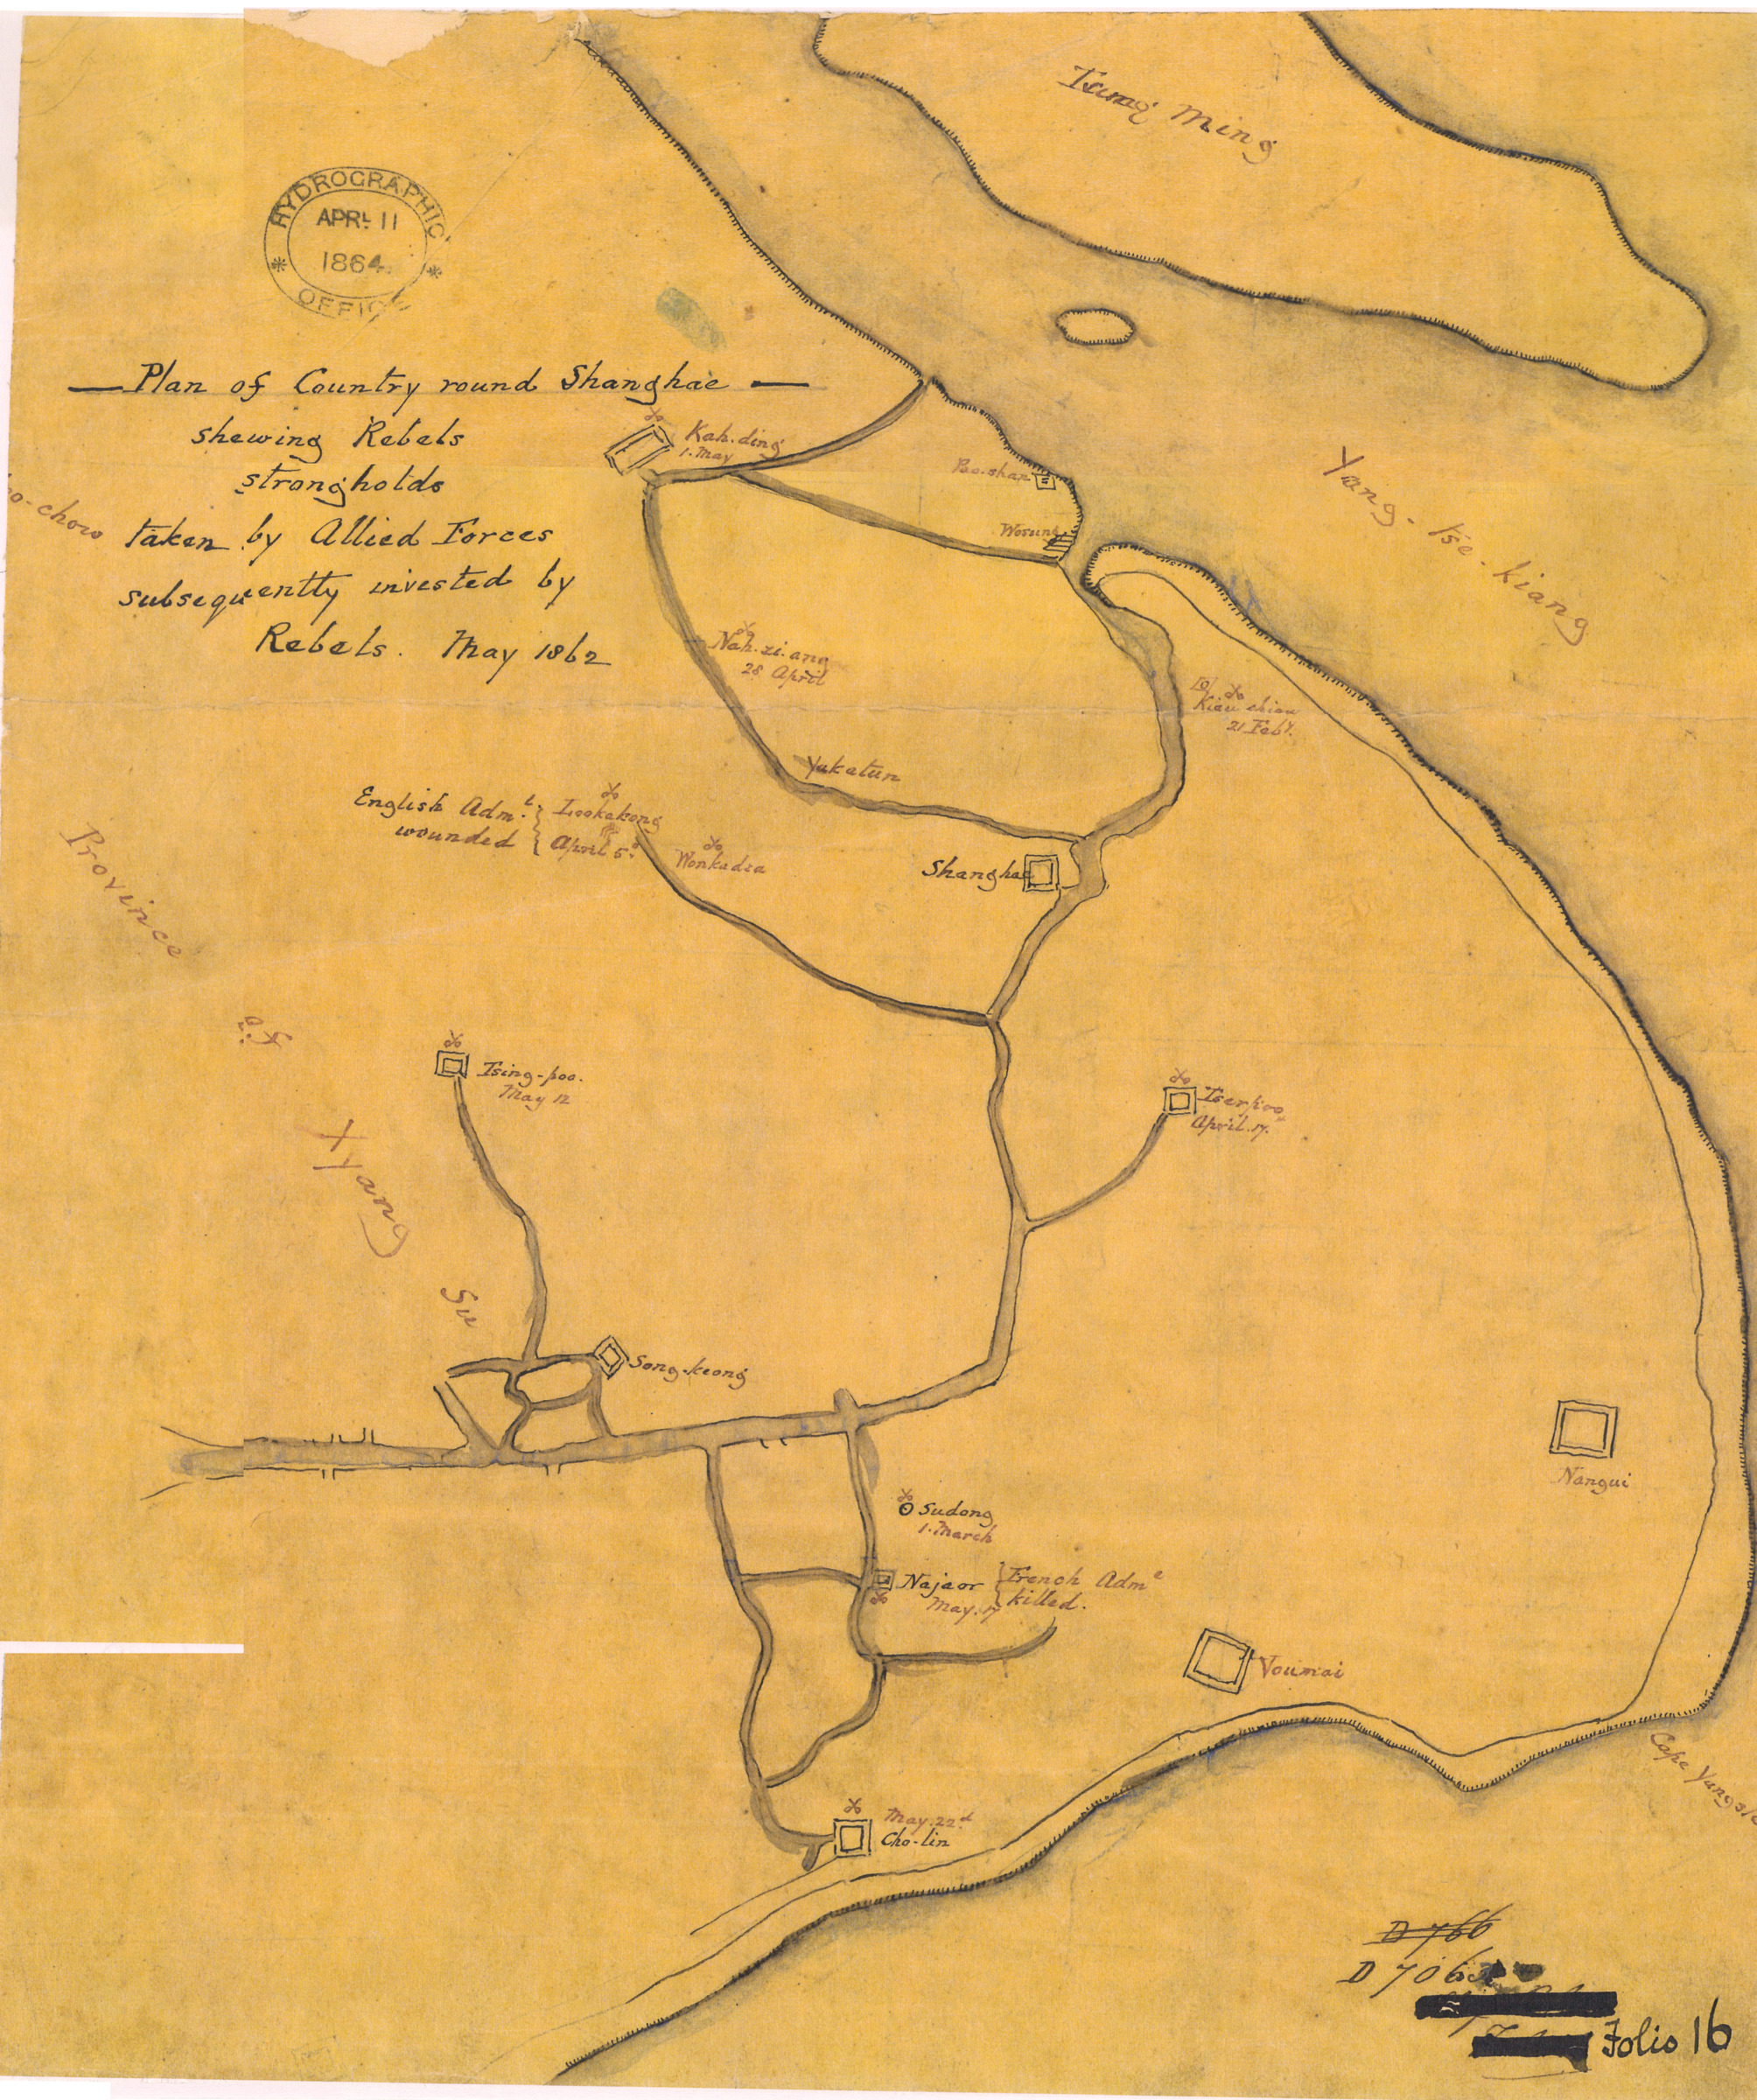 Tsung Ming
HYDROGRAPHIC
APRL 11
1864
OFFICE
— Plan of Country round Shanghae —
shewing Rebels
strongholds
taken by Allied Forces
subsequently invested by
Rebels. May 1862
Kah.ding
1. May
Pao-shan
Wosung
Yang-tse-kiang
o-chow
Nah.zi.ang
28 April
21 Feby.
Yakatun
English Adml. wounded
Lookakong
April 5.
Wonkadza
Shanghae
Province
Tsing-poo.
May 12
Tserpoo
April.17.
Kyang
Su
Song-keong
Nangui
Sudong
1. March
Najaor
May.17
French Adml
killed.
Voumai
Cape Yangs
May.22d
Cho-lin
D 766
D 706
Folio 16